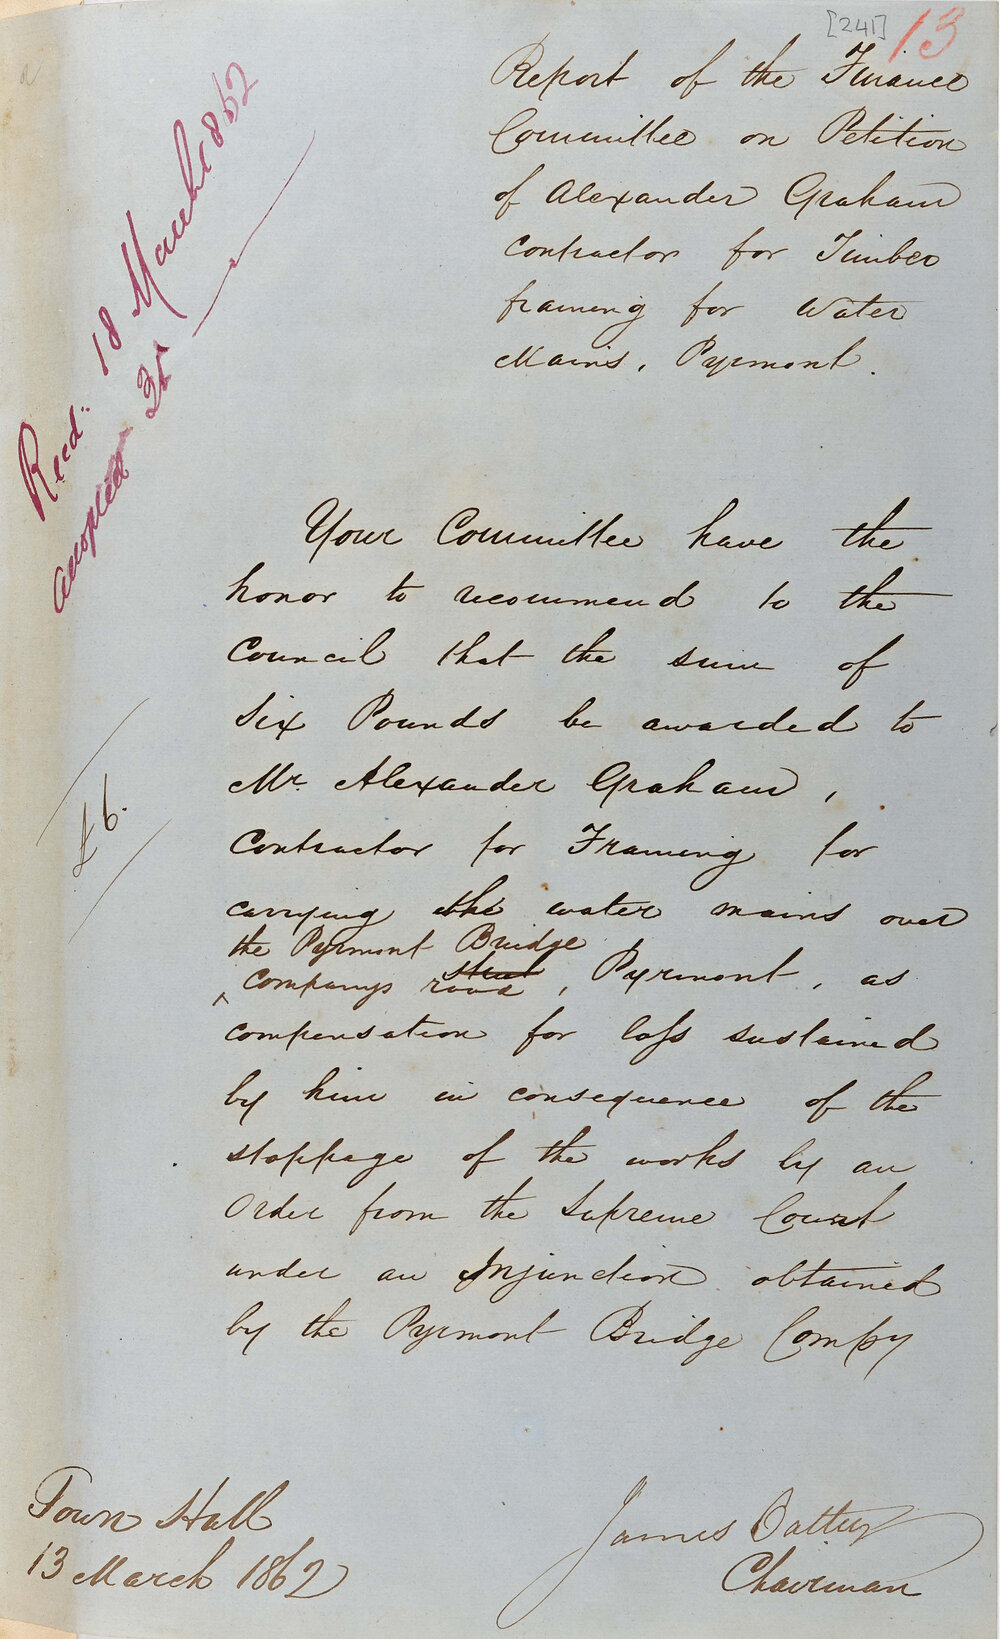 [241] 13
Report of the Finance
Committee on Petition
of Alexander Graham
contractor for Timber
framing for Water
Mains, Pyrmont.
Recd. 18 March 1862
adopted
Your Committee have the
honor to recommend to the
Council that the sum of
Six Pounds be awarded to
Mr. Alexander Graham,
£6.
Contractor for Framing for
carrying the water mains over
the Pyrmont Bridge
street
companys road, Pyrmont, as
compensation for loss sustained
by him in consequence of the
stoppage of the works by an
Order from the Supreme Court
under an Injunction obtained
by the Pyrmont Bridge Compy
Town Hall
13 March 1862
James Oatley
Chairman